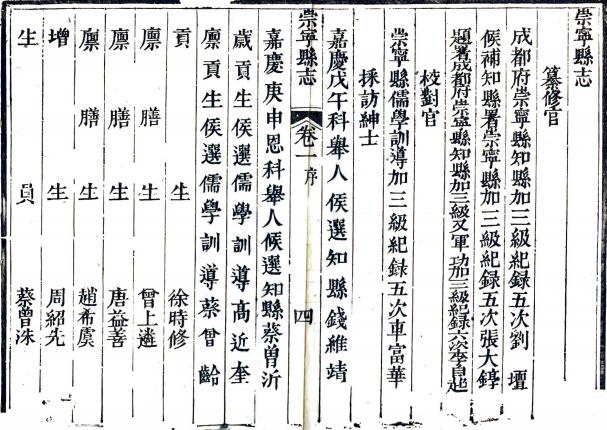 崇寧縣志
纂修官
成都府崇寧縣知縣加三級紀錄五次劉壇
候補知縣署崇寧縣加三級紀錄五次張大錞
題署成都府崇寧縣知縣加三級又軍功加三級紀錄六次李自起
校對官
崇寧縣儒學訓導加三級紀錄五次車富華
採訪紳士
嘉慶戊午科舉人候選知縣錢維靖
崇寧縣志 卷一 序 四
嘉慶庚申恩科舉人候選知縣蔡曾沂
歲貢生候選儒學訓導高近奎
廩貢生候選儒學訓導蔡曾齡
貢生徐時修
廩膳生曾上遴
廩膳生唐益善
廩膳生趙希虞
增生周紹先
生員蔡曾洙